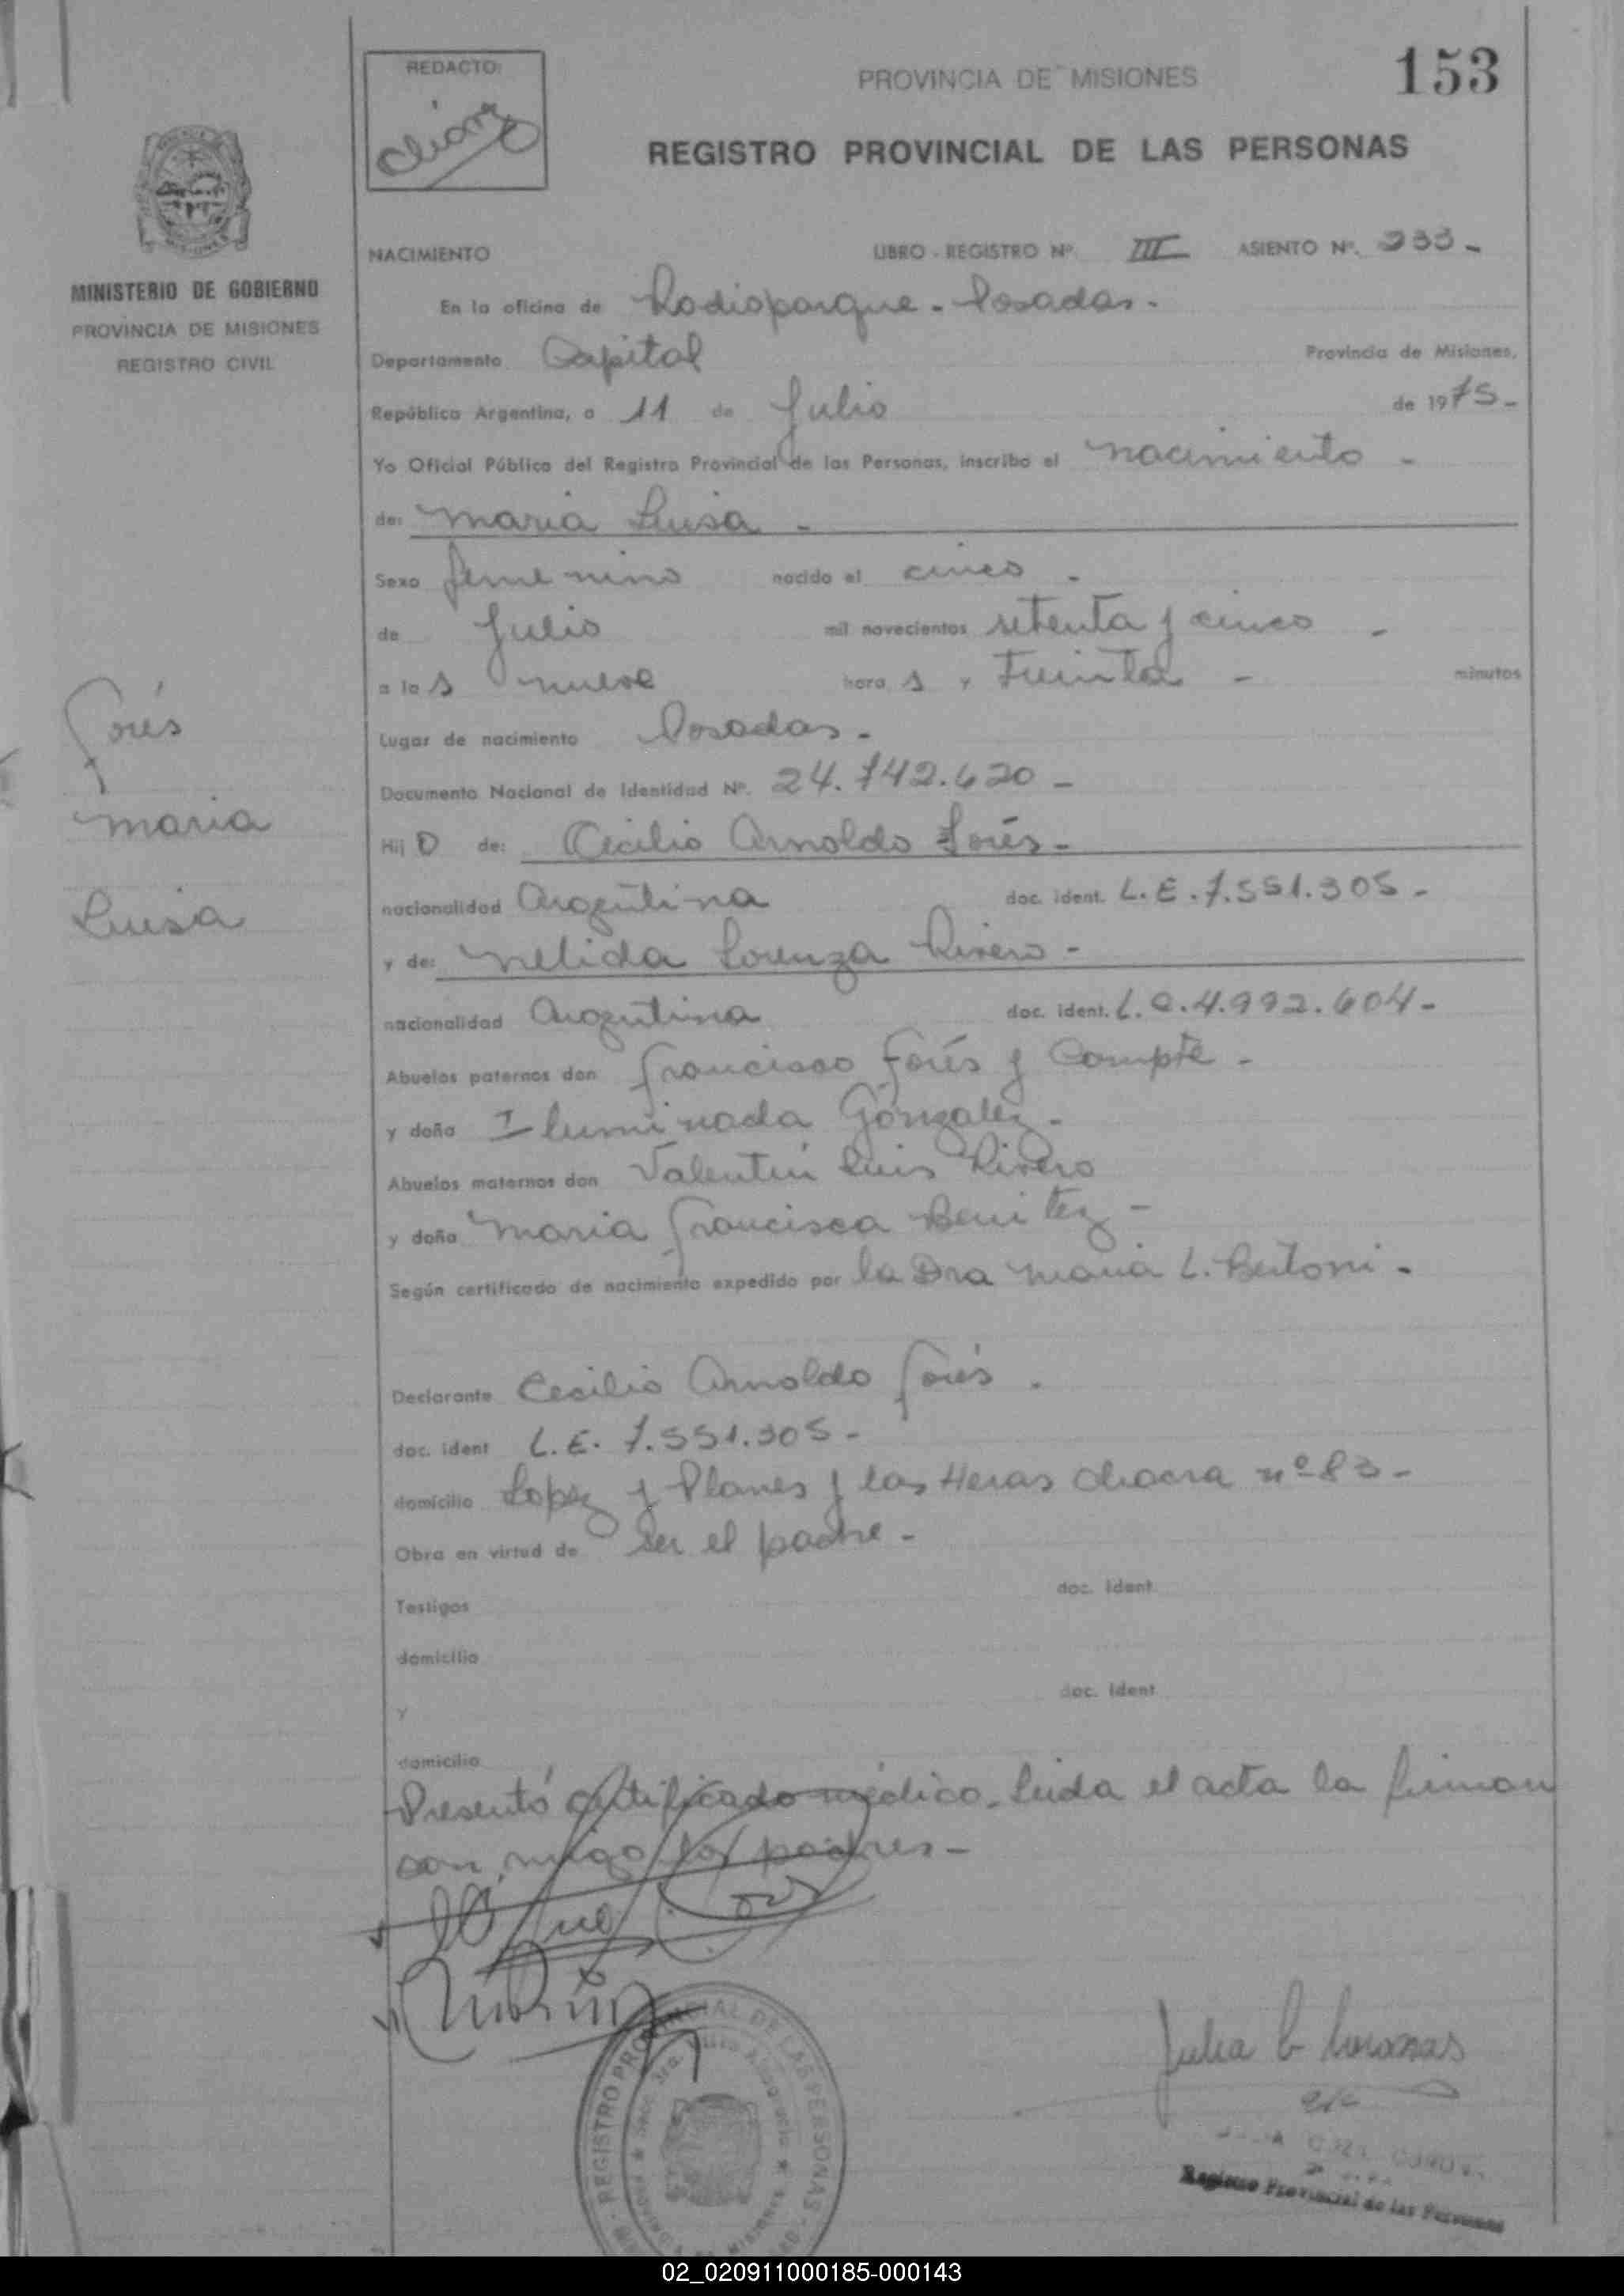 REDACTO:
PROVINCIA DE MISIONES
153
REGISTRO PROVINCIAL DE LAS PERSONAS
MINISTERIO DE GOBIERNO
PROVINCIA DE MISIONES
REGISTRO CIVIL
NACIMIENTO LIBRO - REGISTRO Nº III ASIENTO Nº. 933 -
En la oficina de Radioparque - Posadas -
Departamento Capital Provincia de Misiones,
República Argentina, a 11 de Julio de 1975 -
Yo Oficial Público del Registro Provincial de las Personas, inscribo el nacimiento -
de: Maria Luisa -
Sexo femenino nacido el cinco -
de Julio mil novecientos setenta y cinco -
a las nueve hora s y treinta - minutos
Lugar de nacimiento Posadas -
Documento Nacional de Identidad Nº. 24.742.620 -
Hij a de: Cecilio Arnoldo Forés -
nacionalidad Argentina doc. ident. L.E. 7.551.305 -
y de: Nelida Lorenza Rivero -
nacionalidad Argentina doc. ident. L.C. 4.992.604 -
Abuelos paternos don Francisco Forés y Compte -
y doña Iluminada Gonzalez -
Abuelos maternos don Valentin Luis Rivero
y doña Maria Francisca Benitez -
Según certificado de nacimiento expedido por la Dra Maria L. Bertoni -
Declarante Cecilio Arnoldo Forés -
doc. ident L.E. 7.551.305 -
domicilio Lopez y Planes y las Heras chacra nº 83 -
Obra en virtud de Ser el padre -
Testigos doc. ident
domicilio
y doc. ident
domicilio
Presentó certificado médico. Leida el acta la firman
con migo los padres -
Forés
Maria
Luisa
REGISTRO PROVINCIAL DE LAS PERSONAS
MISIONES
Julia
Registro Provincial de las Personas
02_020911000185-000143